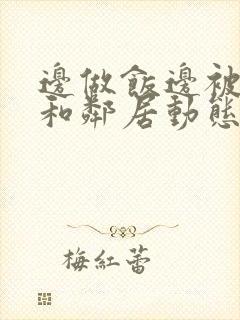 邊做飯邊被
和鄰居動態
梅紅蕾